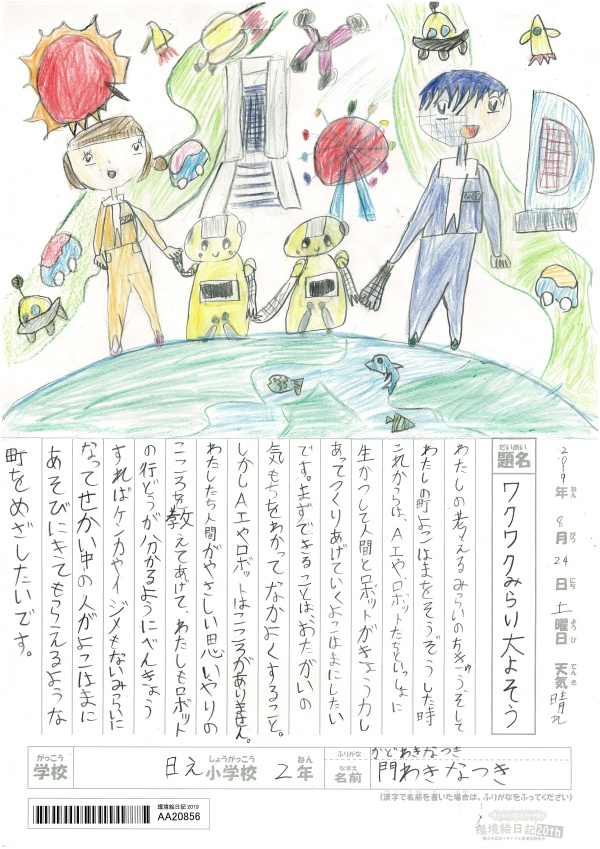 2019年 8月 24日 土曜日 天気 晴れ
ねん がつ にち ようび てんき
だいめい
題名
ワクワクみらい大よそう
わたしの考えるみらいのちきゅう、そして
わたしの町よこはまをそうぞうした時
これからは、AIや、ロボットたちといっしょに
生かつして人間とロボットがきょう力し
あってつくりあげていくよこはまにしたい
です。まずできることは、おたがいの
気もちをわかってなかよくすること。
しかしAIやロボットはこころがありません。
わたしたち人間がやさしい思いやりの
こころを教えてあげて、わたしもロボット
の行どうが分かるようにべんきょう
すればケンカやイジメもないみらいに
なってせかい中の人がよこはまに
あそびにきてもらえるような
町をめざしたいです。
がっこう
学校
日え 小学校 2年
しょうがっこう ねん
ふりがな かどわきなつき
なまえ
名前 門わきなつき
(漢字で名前を書いた場合は、ふりがなをふってください)
環境絵日記 2019
AA20856
環境絵日記 20th